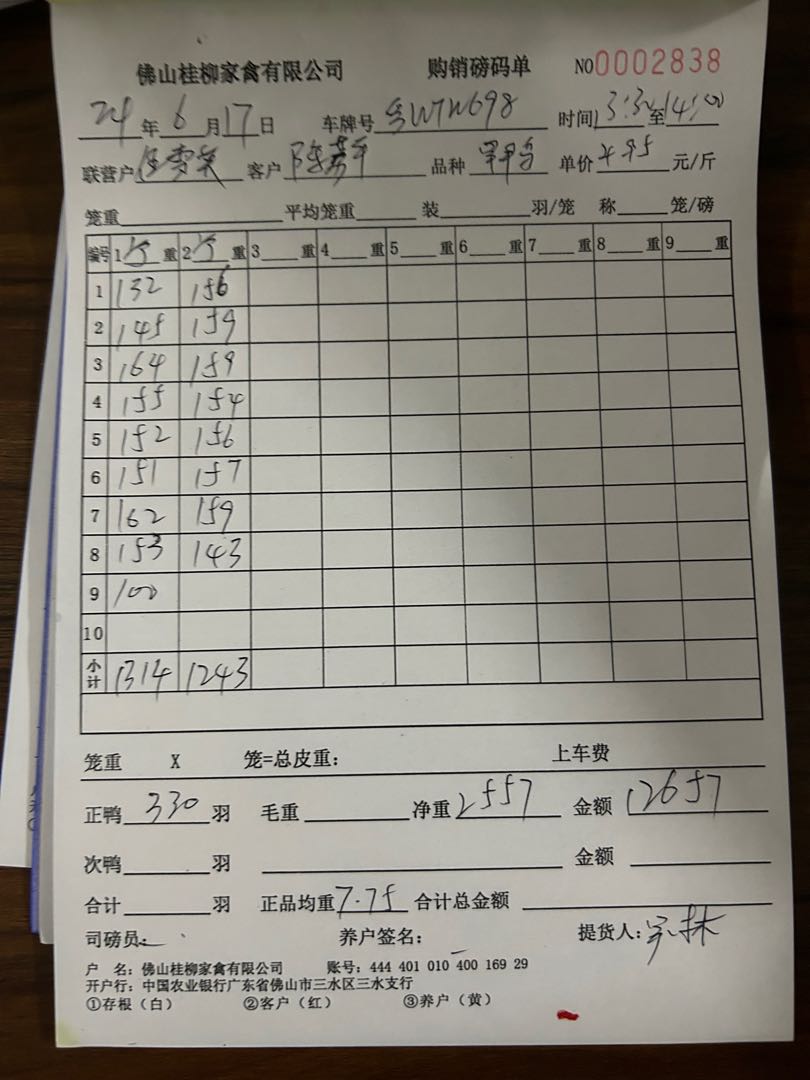 佛山桂柳家禽有限公司 购销磅码单 NO0002838
24年6月17日 车牌号 WTW698 时间13:30至14:00
联营户 客户 陈芳平 品种 单价 4.95 元/斤
笼重 平均笼重 装 羽/笼 称 笼/磅
编号 1 15 重 2 15 重 3 重 4 重 5 重 6 重 7 重 8 重 9 重
1 132 156
2 145 159
3 164 159
4 155 154
5 152 156
6 151 157
7 162 159
8 153 143
9 100
10
小计 1314 1243
笼重 X 笼=总皮重: 上车费
正鸭 330 羽 毛重 净重 2557 金额 12657
次鸭 羽 金额
合计 羽 正品均重 7.75 合计总金额
司磅员: 养户签名: 提货人:
户 名: 佛山桂柳家禽有限公司 账号: 444 401 010 400 169 29
开户行: 中国农业银行广东省佛山市三水区三水支行
①存根（白） ②客户（红） ③养户（黄）